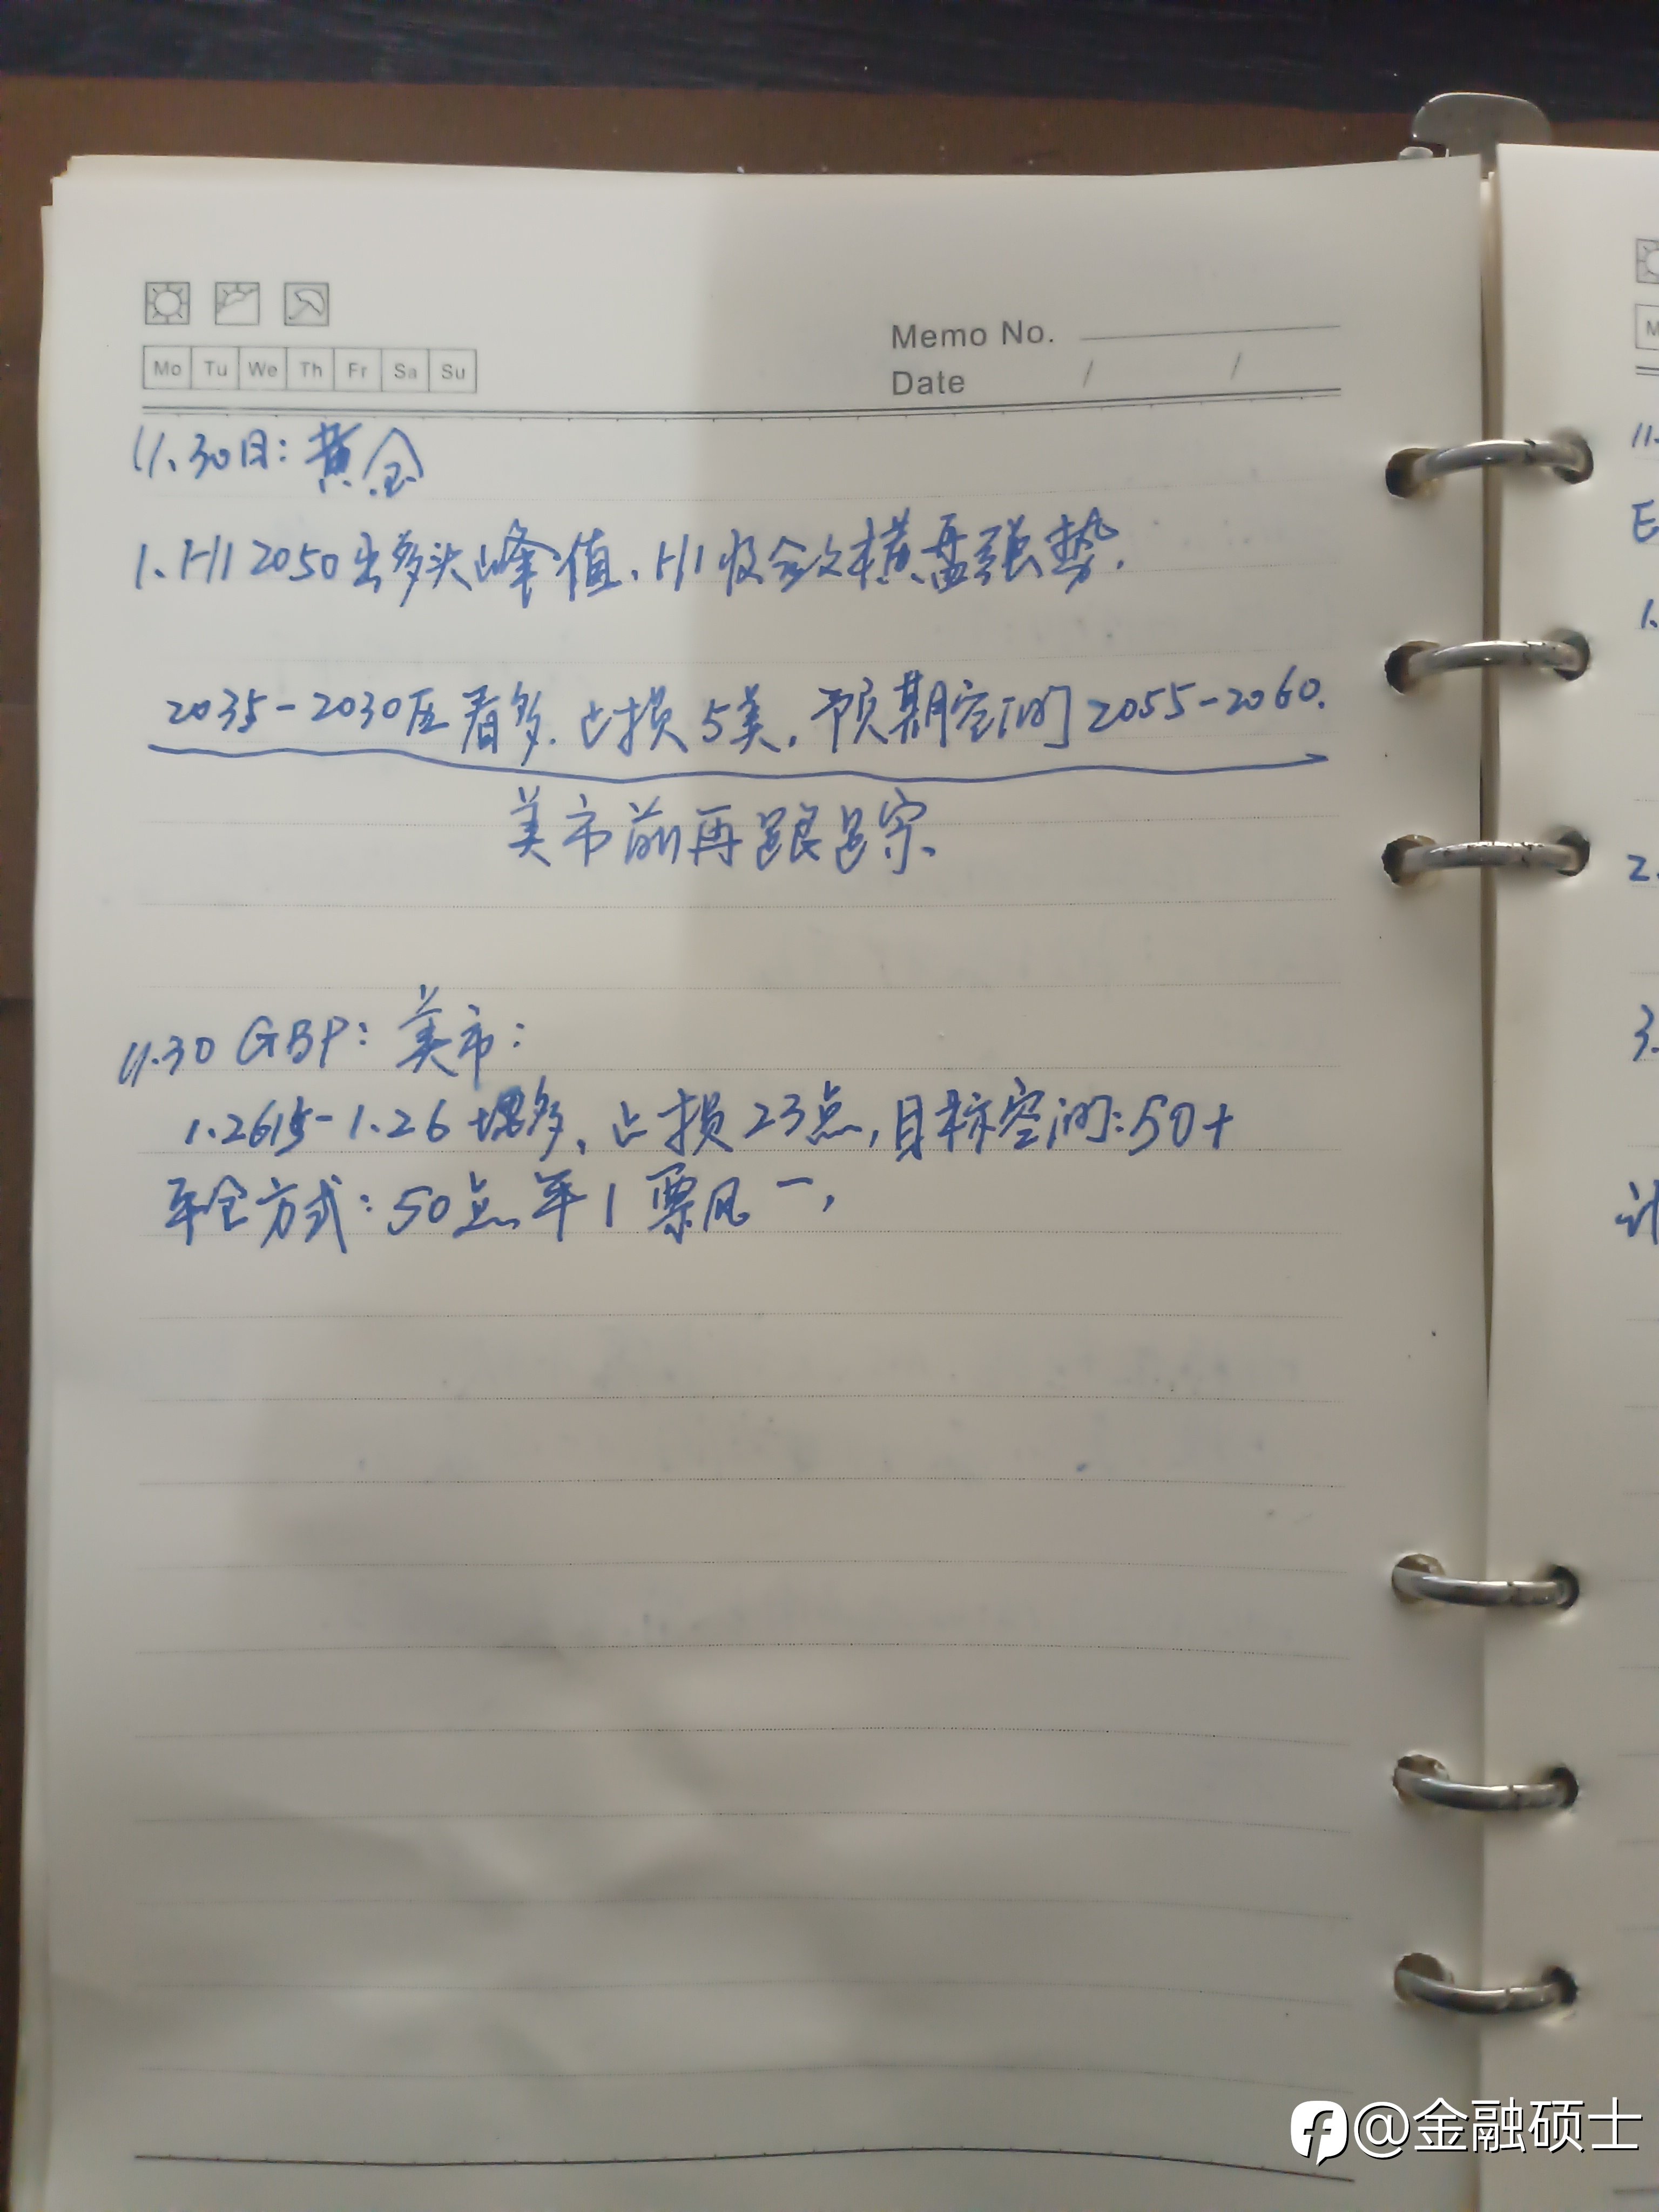 Mo Tu We Th Fr Sa Su
Memo No.
Date / /
11.30日：黄金
1、H1 2050出多头峰值、H1收敛横盘强势.
2035-2030区看多.止损5美，预期空间2055-2060.
美市前再跟踪、
11.30 GBP：美市：
1.2615-1.26 多、止损23点，目标空间：50+
平仓方式：50点平1票风一，
M
11.
E
1.
2.
3.
计
@金融硕士